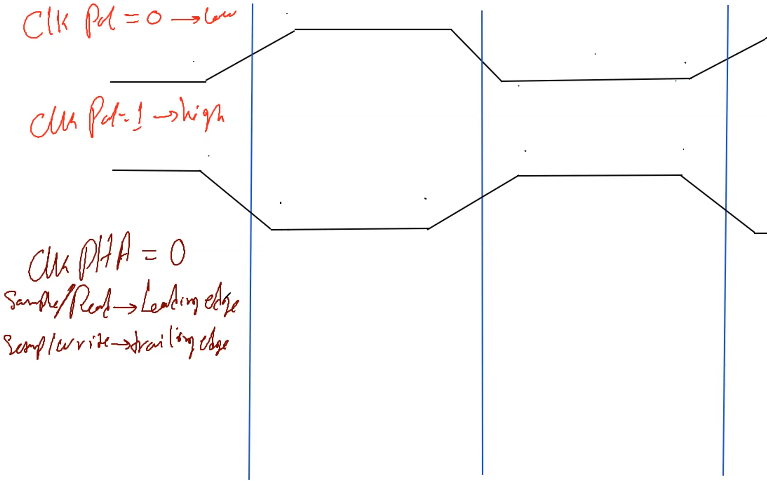 Clk Pol = 0 → Low
Clk Pol = 1 → high
Clk PHA = 0
Sample/Read → Leading edge
Samp/write → trailing edge